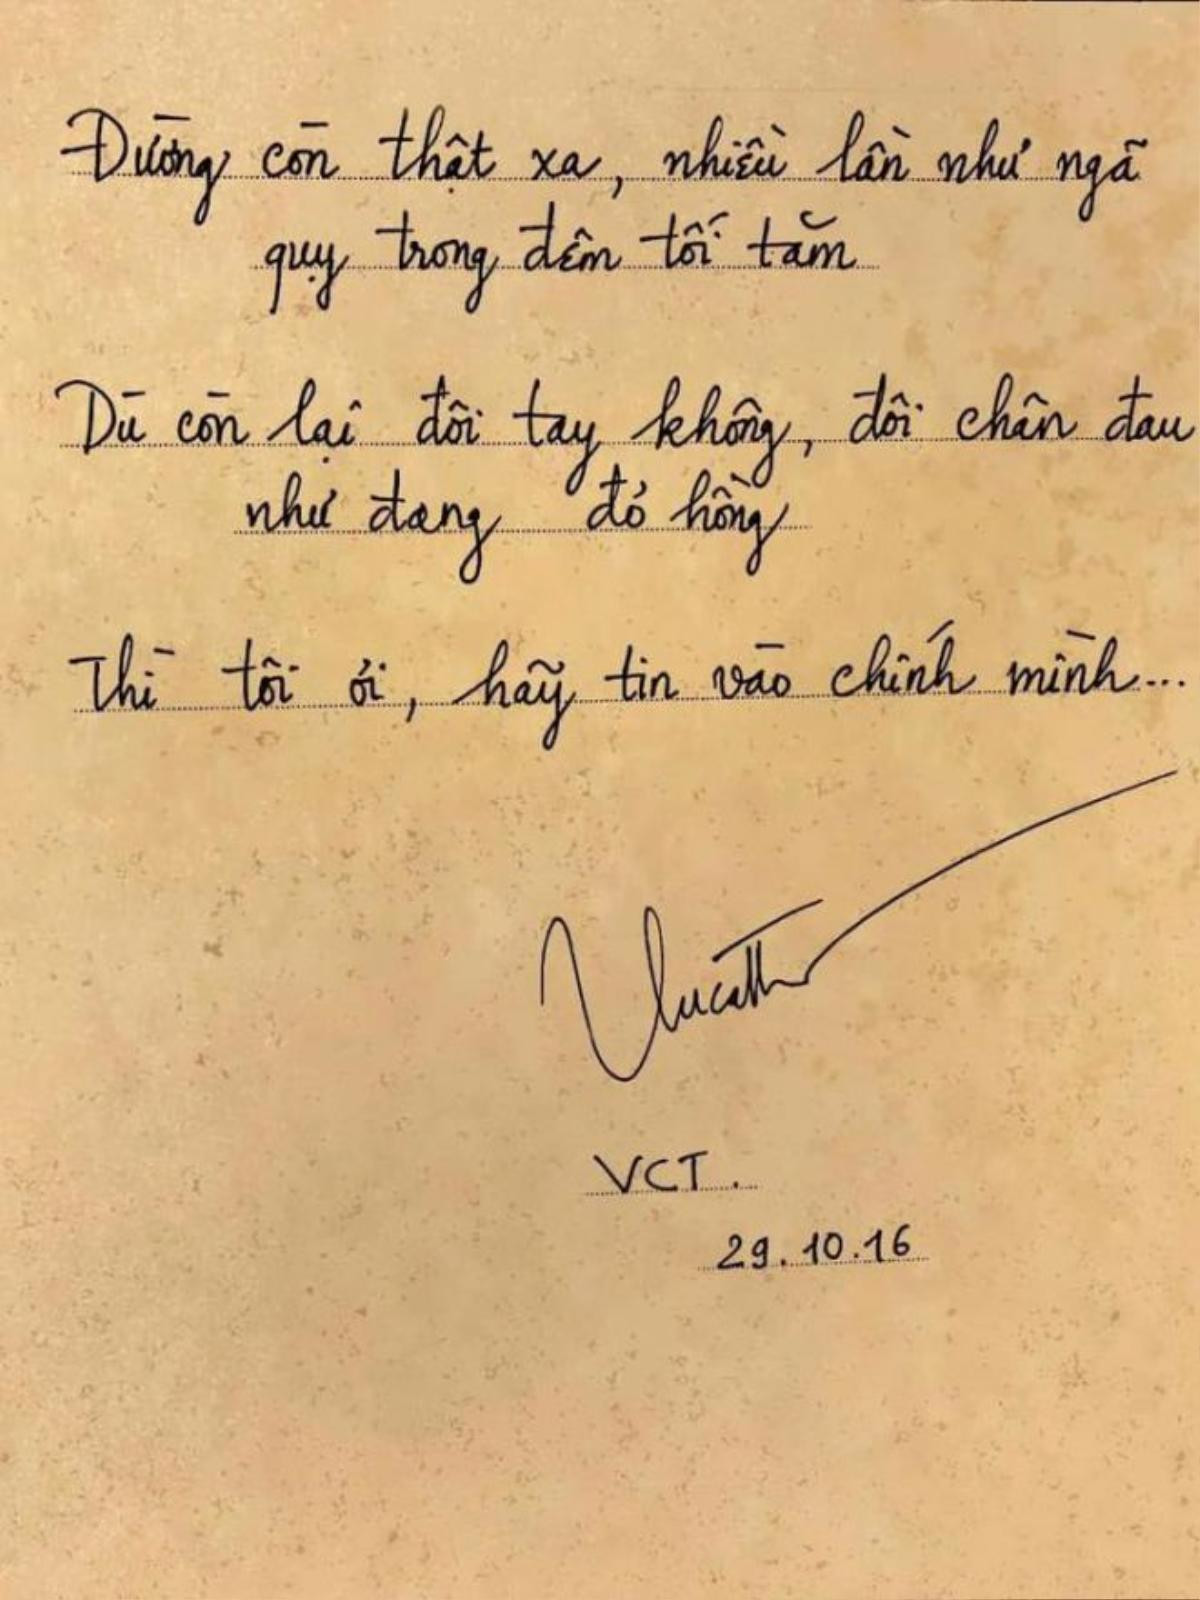 Đường còn thật xa, nhiều lần như ngã
quỵ trong đêm tối tăm
Dù còn lại đôi tay không, đôi chân đau
như đang đỏ hồng
Thì tôi ơi, hãy tin vào chính mình...
VCT.
29.10.16